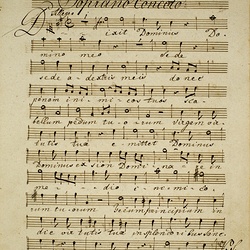 Soprano Concto
Allegro
Dixit Dominus Do-
mino meo sede
sede a dextris meis donec
ponam inimicos tuos sca-
bellum pedum tuorum virgam vir
tutis tuæ emittet Dominus
Dominus ex sion Domina re in
me - dio inimico-
rum tuorum tecum principium in
die virtutis tuæ in splendoribus sanc